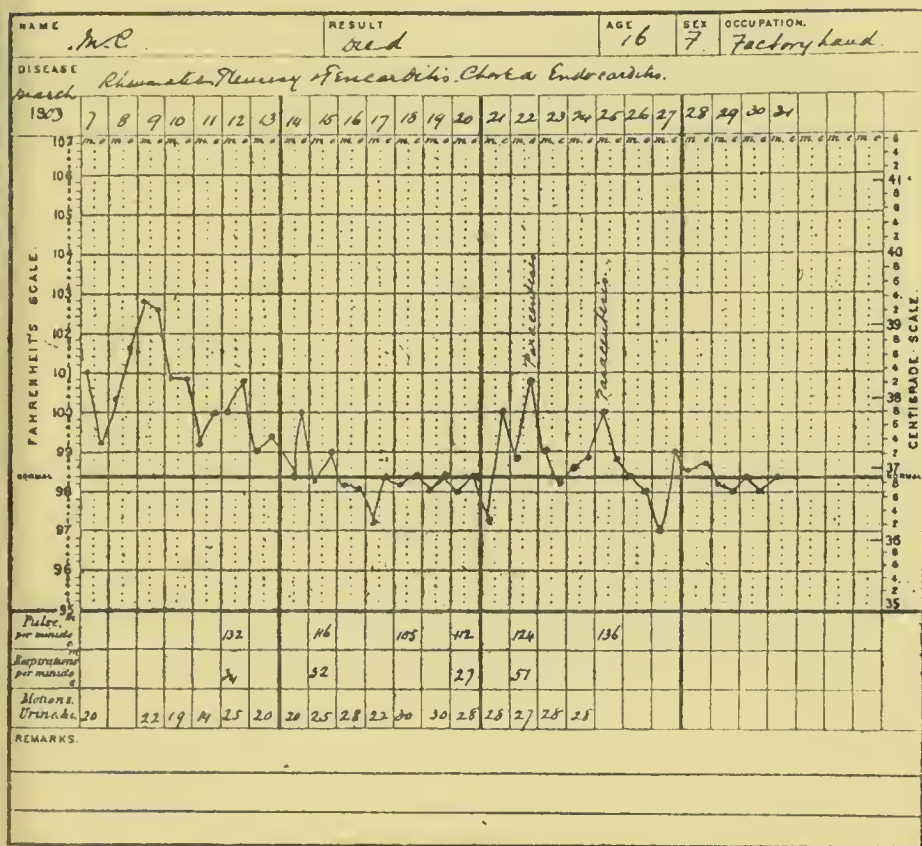 NAME M.C RESULT Died AGE 16 SEX F OCCUPATION. Factory hand.
DISEASE Rheumatism Pleurisy & Pericarditis. Chorea Endocarditis.
March
1903 7 8 9 10 11 12 13 14 15 16 17 18 19 20 21 22 23 24 25 26 27 28 29 30 31
m e m e m e m e m e m e m e m e m e m e m e m e m e m e m e m e m e m e m e m e m e m e m e m e m e m e m e
107
106 41°
105
104 40
103
102 39
101
100 38
99 37
NORMAL NORMAL
98
97 36
96
95 35
FAHRENHEIT'S SCALE.
CENTIGRADE SCALE.
Paracentesis
Paracentesis.
Pulse, per minute m e 132 116 105 112 124 136
Respirations per minute m e 34 32 27 51
Motions.
Urine.&c. 20 22 19 14 25 20 20 25 28 22 30 30 28 28 27 28 28
REMARKS.